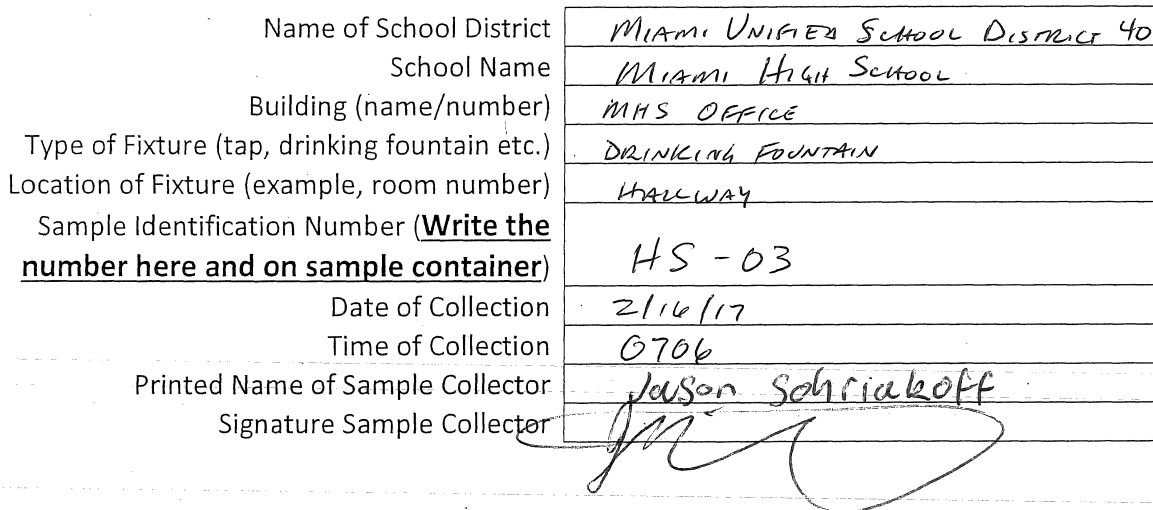 Name of School District MIAMI UNIFIED SCHOOL DISTRICT 40
School Name MIAMI HIGH SCHOOL
Building (name/number) MHS OFFICE
Type of Fixture (tap, drinking fountain etc.) DRINKING FOUNTAIN
Location of Fixture (example, room number) HALLWAY
Sample Identification Number (Write the
number here and on sample container) HS - 03
Date of Collection 2/16/17
Time of Collection 0706
Printed Name of Sample Collector Jason
Signature Sample Collector